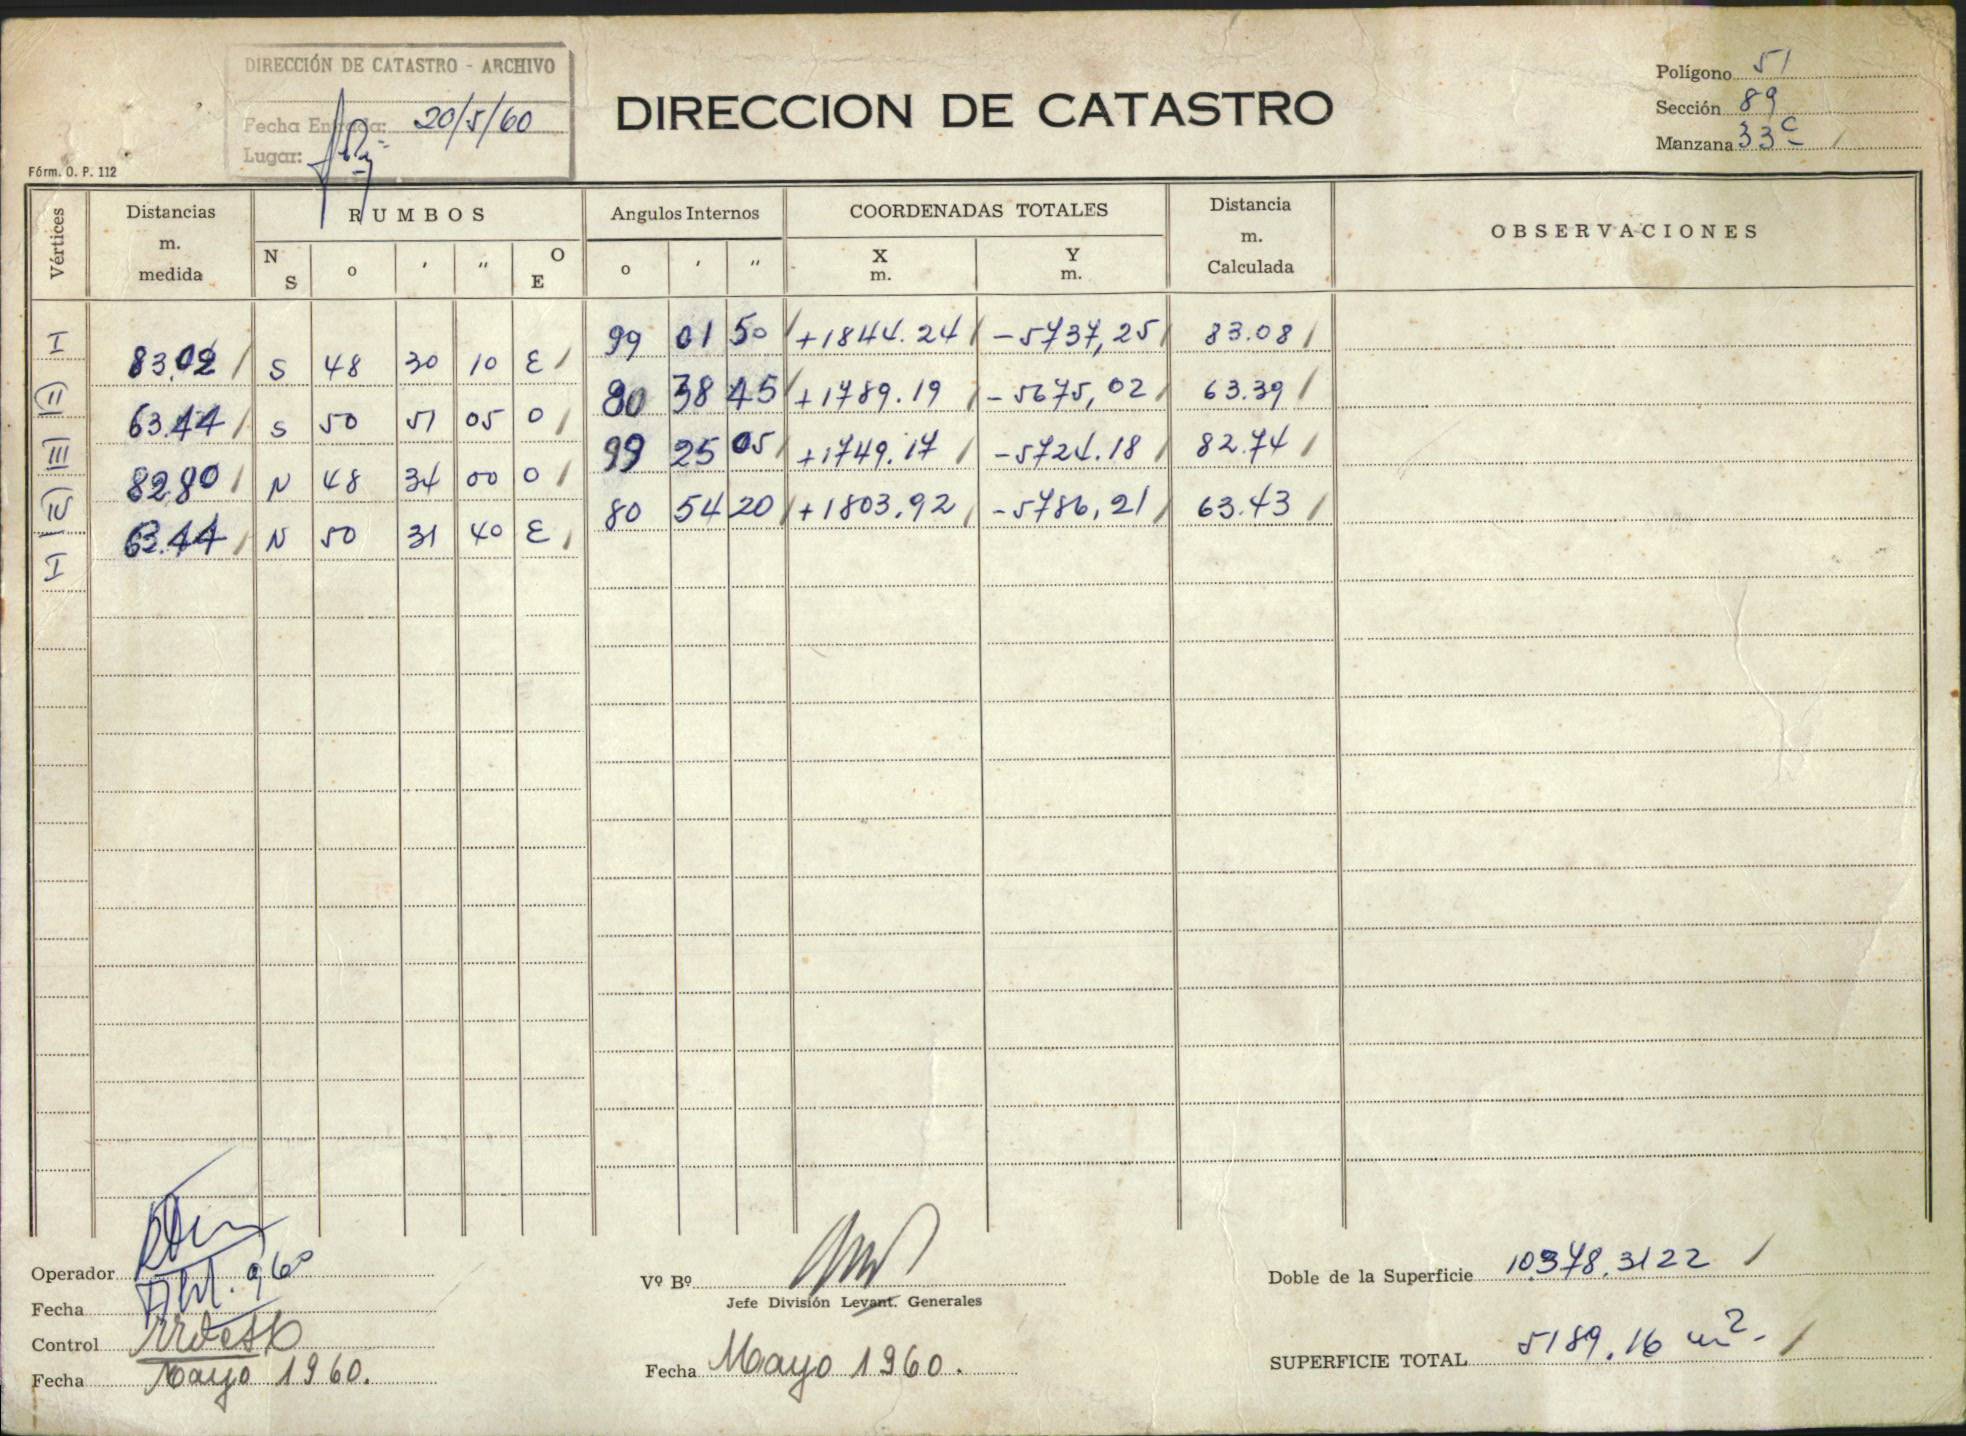 DIRECCIÓN DE CATASTRO - ARCHIVO
Fecha Entrada: 20/5/60
Lugar:
Fórm. O. P. 112
DIRECCION DE CATASTRO
Polígono 51
Sección 89
Manzana 33c /
Vértices Distancias m. medida RUMBOS Angulos Internos COORDENADAS TOTALES Distancia m. Calculada OBSERVACIONES
N S o ' " O E o ' " X m. Y m.
I 99 01 50 / +1844.24 / -5737,25 / 83.08 /
83.02 / S 48 30 10 E /
II 80 38 45 / +1789.19 / -5675,02 / 63.39 /
63.44 / S 50 51 05 O /
III 99 25 05 / +1749.17 / -5724.18 / 82.74 /
82.80 / N 48 34 00 O /
IV 80 54 20 / +1803.92 / -5786,21 / 63.43 /
63.44 / N 50 31 40 E /
I
Operador
Fecha Abl. 960
Control
Fecha Mayo 1960.
Vº Bº
Jefe División Levant. Generales
Fecha Mayo 1960.
Doble de la Superficie 10378.3122 /
SUPERFICIE TOTAL 5189.16 m2. /